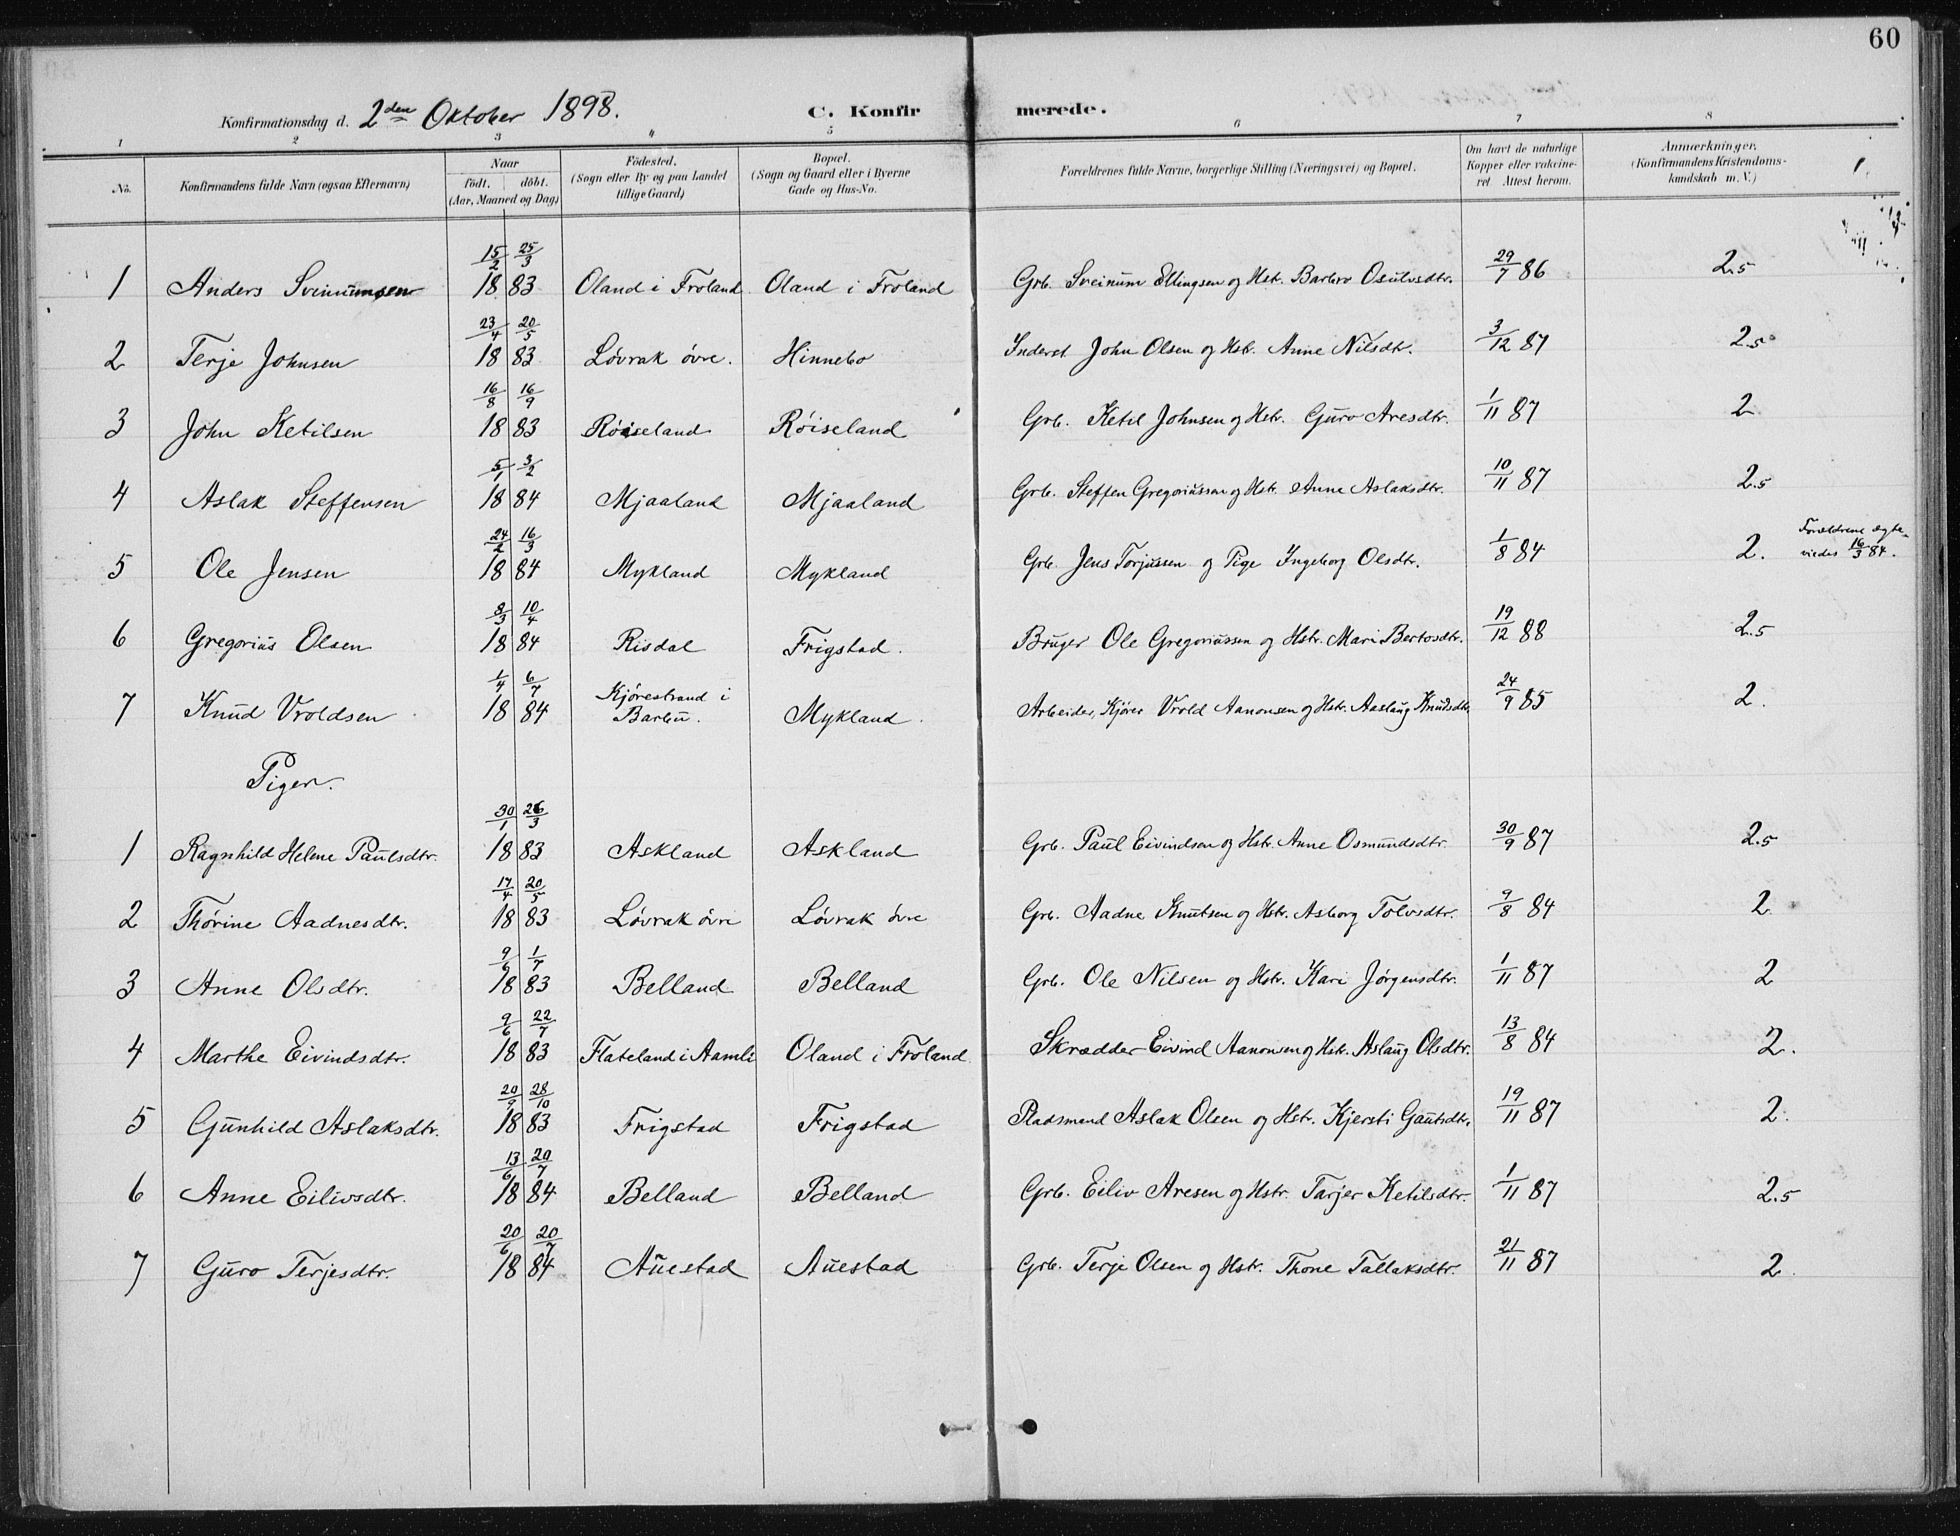 60
Konfirmationsdag d. 2den Oktober 1898. C. Konfirmerede.
1 2 3 4 5 6 7 8
No. Konfirmandens fulde Navn (ogsaa Efternavn) Naar födt. döbt. (Aar, Maaned og Dag) Födested. (Sogn eller By og paa Landet tillige Gaard) Bopæl. (Sogn og Gaard eller i Byerne Gade og Hus-No. Forældrenes fulde Navne, borgerlige Stilling (Næringsvei) og Bopæl. Om havt de naturlige Kopper eller vakcineret. Attest herom. Anmærkninger. (Konfirmandens Kristendomskundskab m. V.)
1 Anders Sveinumsen 15/2 25/3 1883 Oland i Froland Oland i Froland Grb. Sveinum Ellingsen og Hstr. Barbro Osulvsdtr. 29/7 86 2.5
2 Terje Johnsen 23/4 20/5 1883 Lövrak övre. Hinnebo Inderst John Olsen og Hstr. Anne Nilsdtr. 3/12 87 2.5
3 John Ketilsen 16/8 16/9 1883 Röiseland Röiseland Grb. Ketil Johnsen og Hstr. Guro Aresdtr. 1/11 87 2
4 Aslak Steffensen 5/1 3/2 1884 Mjaaland Mjaaland Grb. Steffen Gregoriussen og Hstr. Anne Aslaksdtr. 10/11 87 2.5
5 Ole Jensen 24/2 16/3 1884 Mykland Mykland Grb. Jens Torjussen og Pige Ingeborg Olsdtr. 1/8 84 2. Forældrene ægteviedes 16/3 84.
6 Gregorius Olsen 8/3 10/4 1884 Risdal Frigstad. Bruger Ole Gregoriussen og Hstr. Mari Bertosdtr. 19/12 88 2.5
7 Knud Vroldsen 1/4 6/7 1884 Kjörestrand i Barbu. Mykland. Arbeider, Kjörer Vrold Aanonsen og Hstr. Aaslaug Knudsdtr. 24/9 85 2.
Piger.
1 Ragnhild Helene Paulsdtr. 30/1 26/3 1883 Askland Askland Grb. Paul Eivindsen og Hstr. Anne Osmundsdtr. 30/9 87 2.5
2 Thörine Aadnesdtr. 17/4 20/5 1883 Lövrak övre Lövrak övre Grb. Aadne Knutsen og Hstr. Asborg Tolvsdtr. 9/8 84 2
3 Anne Olsdtr. 9/6 1/7 1883 Belland Belland Grb. Ole Nilsen og Hstr. Kari Jörgensdtr. 1/11 87 2
4 Marthe Eivindsdtr. 9/6 22/7 1883 Flateland i Aamli Oland i Froland. Skrædder Eivind Aanonsen og Hstr. Aslaug Olsdtr. 13/8 84 2.
5 Gunhild Aslaksdtr. 20/9 28/10 1883 Frigstad Frigstad Pladsmand Aslak Olsen og Hstr. Kjersti Gautsdtr. 19/11 87 2.
6 Anne Eilivsdtr. 13/6 20/7 1884 Belland Belland Grb. Eiliv Aresen og Hstr. Tarjer Ketilsdtr. 1/11 87 2.5
7 Guro Terjesdtr. 20/6 20/7 1884 Auestad Auestad Grb. Terje Olsen og Hstr. Thone Tallaksdtr. 21/11 87 2.